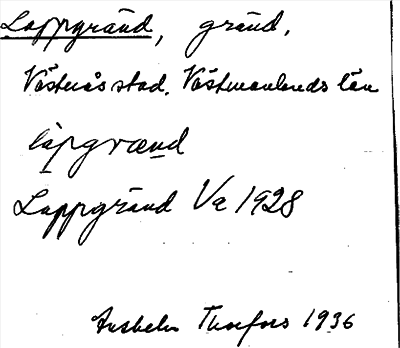 Lappgränd, gränd,
Västerås stad. Västmanlands län
lapgrænd
Lappgränd Va 1928
Thorfors 1936